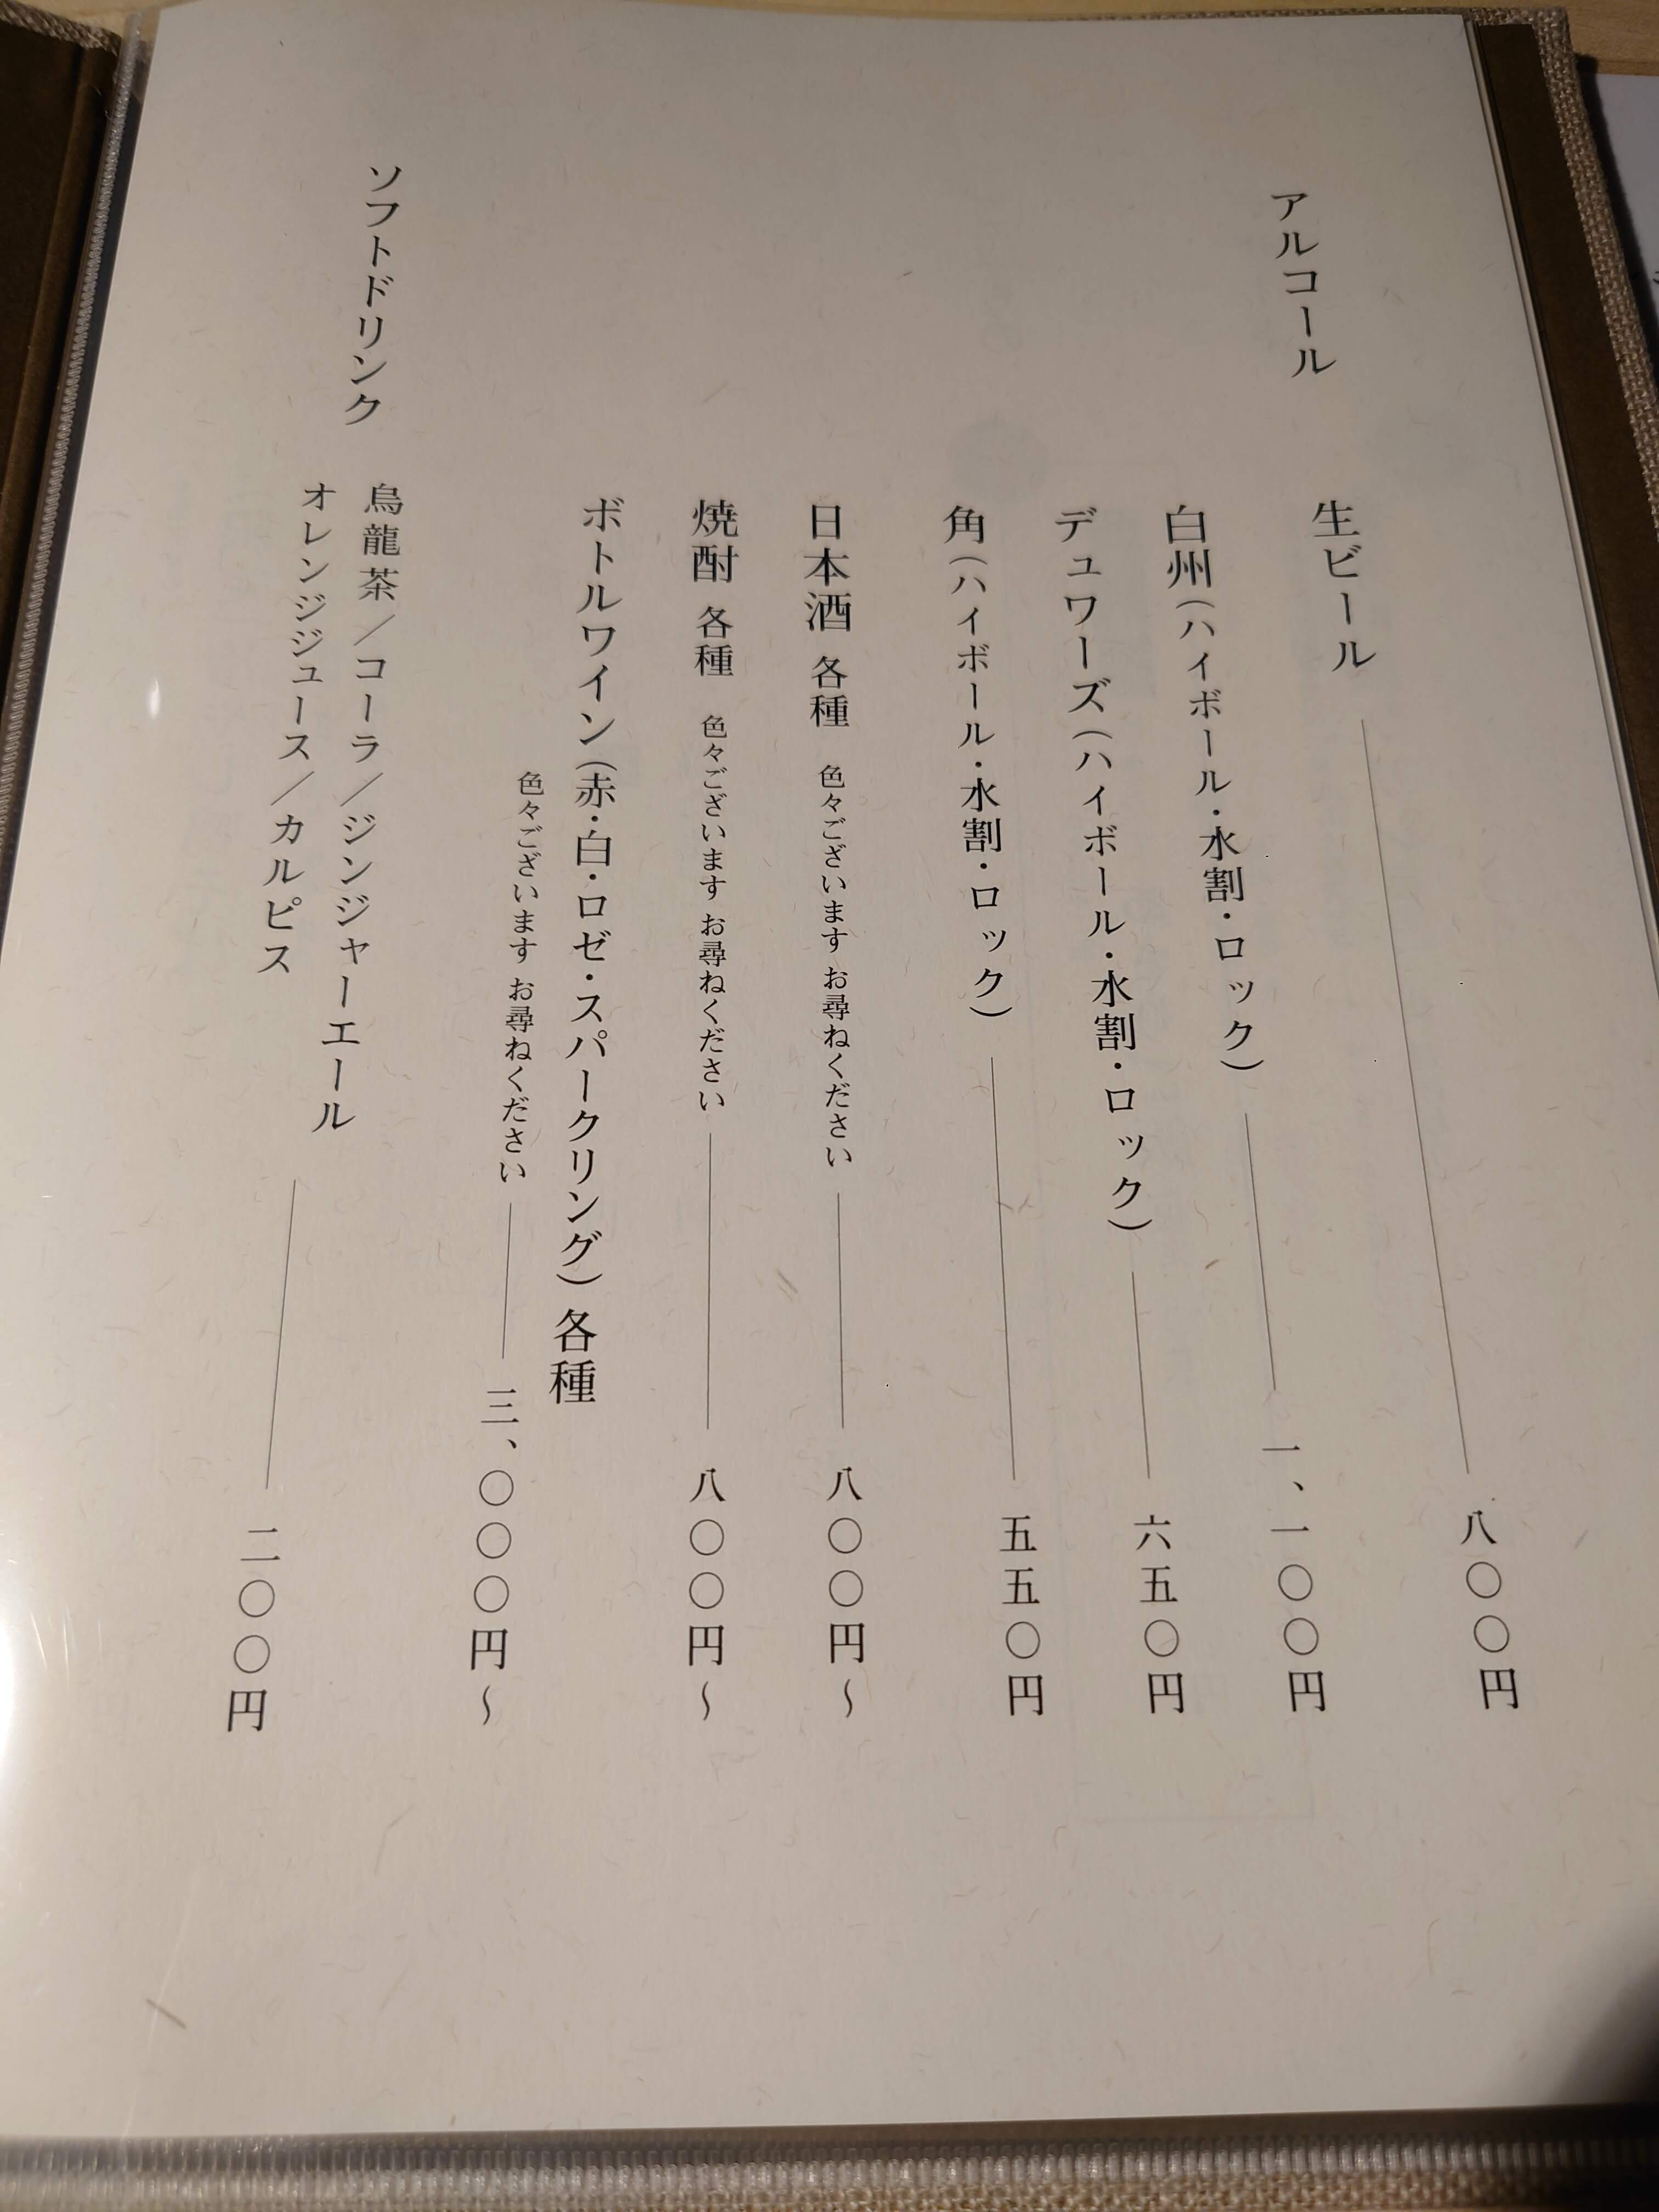 アルコール
生ビール 八〇〇円
白州（ハイボール・水割・ロック） 一、一〇〇円
デュワーズ（ハイボール・水割・ロック） 六五〇円
角（ハイボール・水割・ロック） 五五〇円
日本酒 各種 色々ございます お尋ねください 八〇〇円〜
焼酎 各種 色々ございます お尋ねください 八〇〇円〜
ボトルワイン（赤・白・ロゼ・スパークリング）各種
色々ございます お尋ねください 三、〇〇〇円〜
ソフトドリンク
烏龍茶／コーラ／ジンジャーエール
オレンジジュース／カルピス 二〇〇円